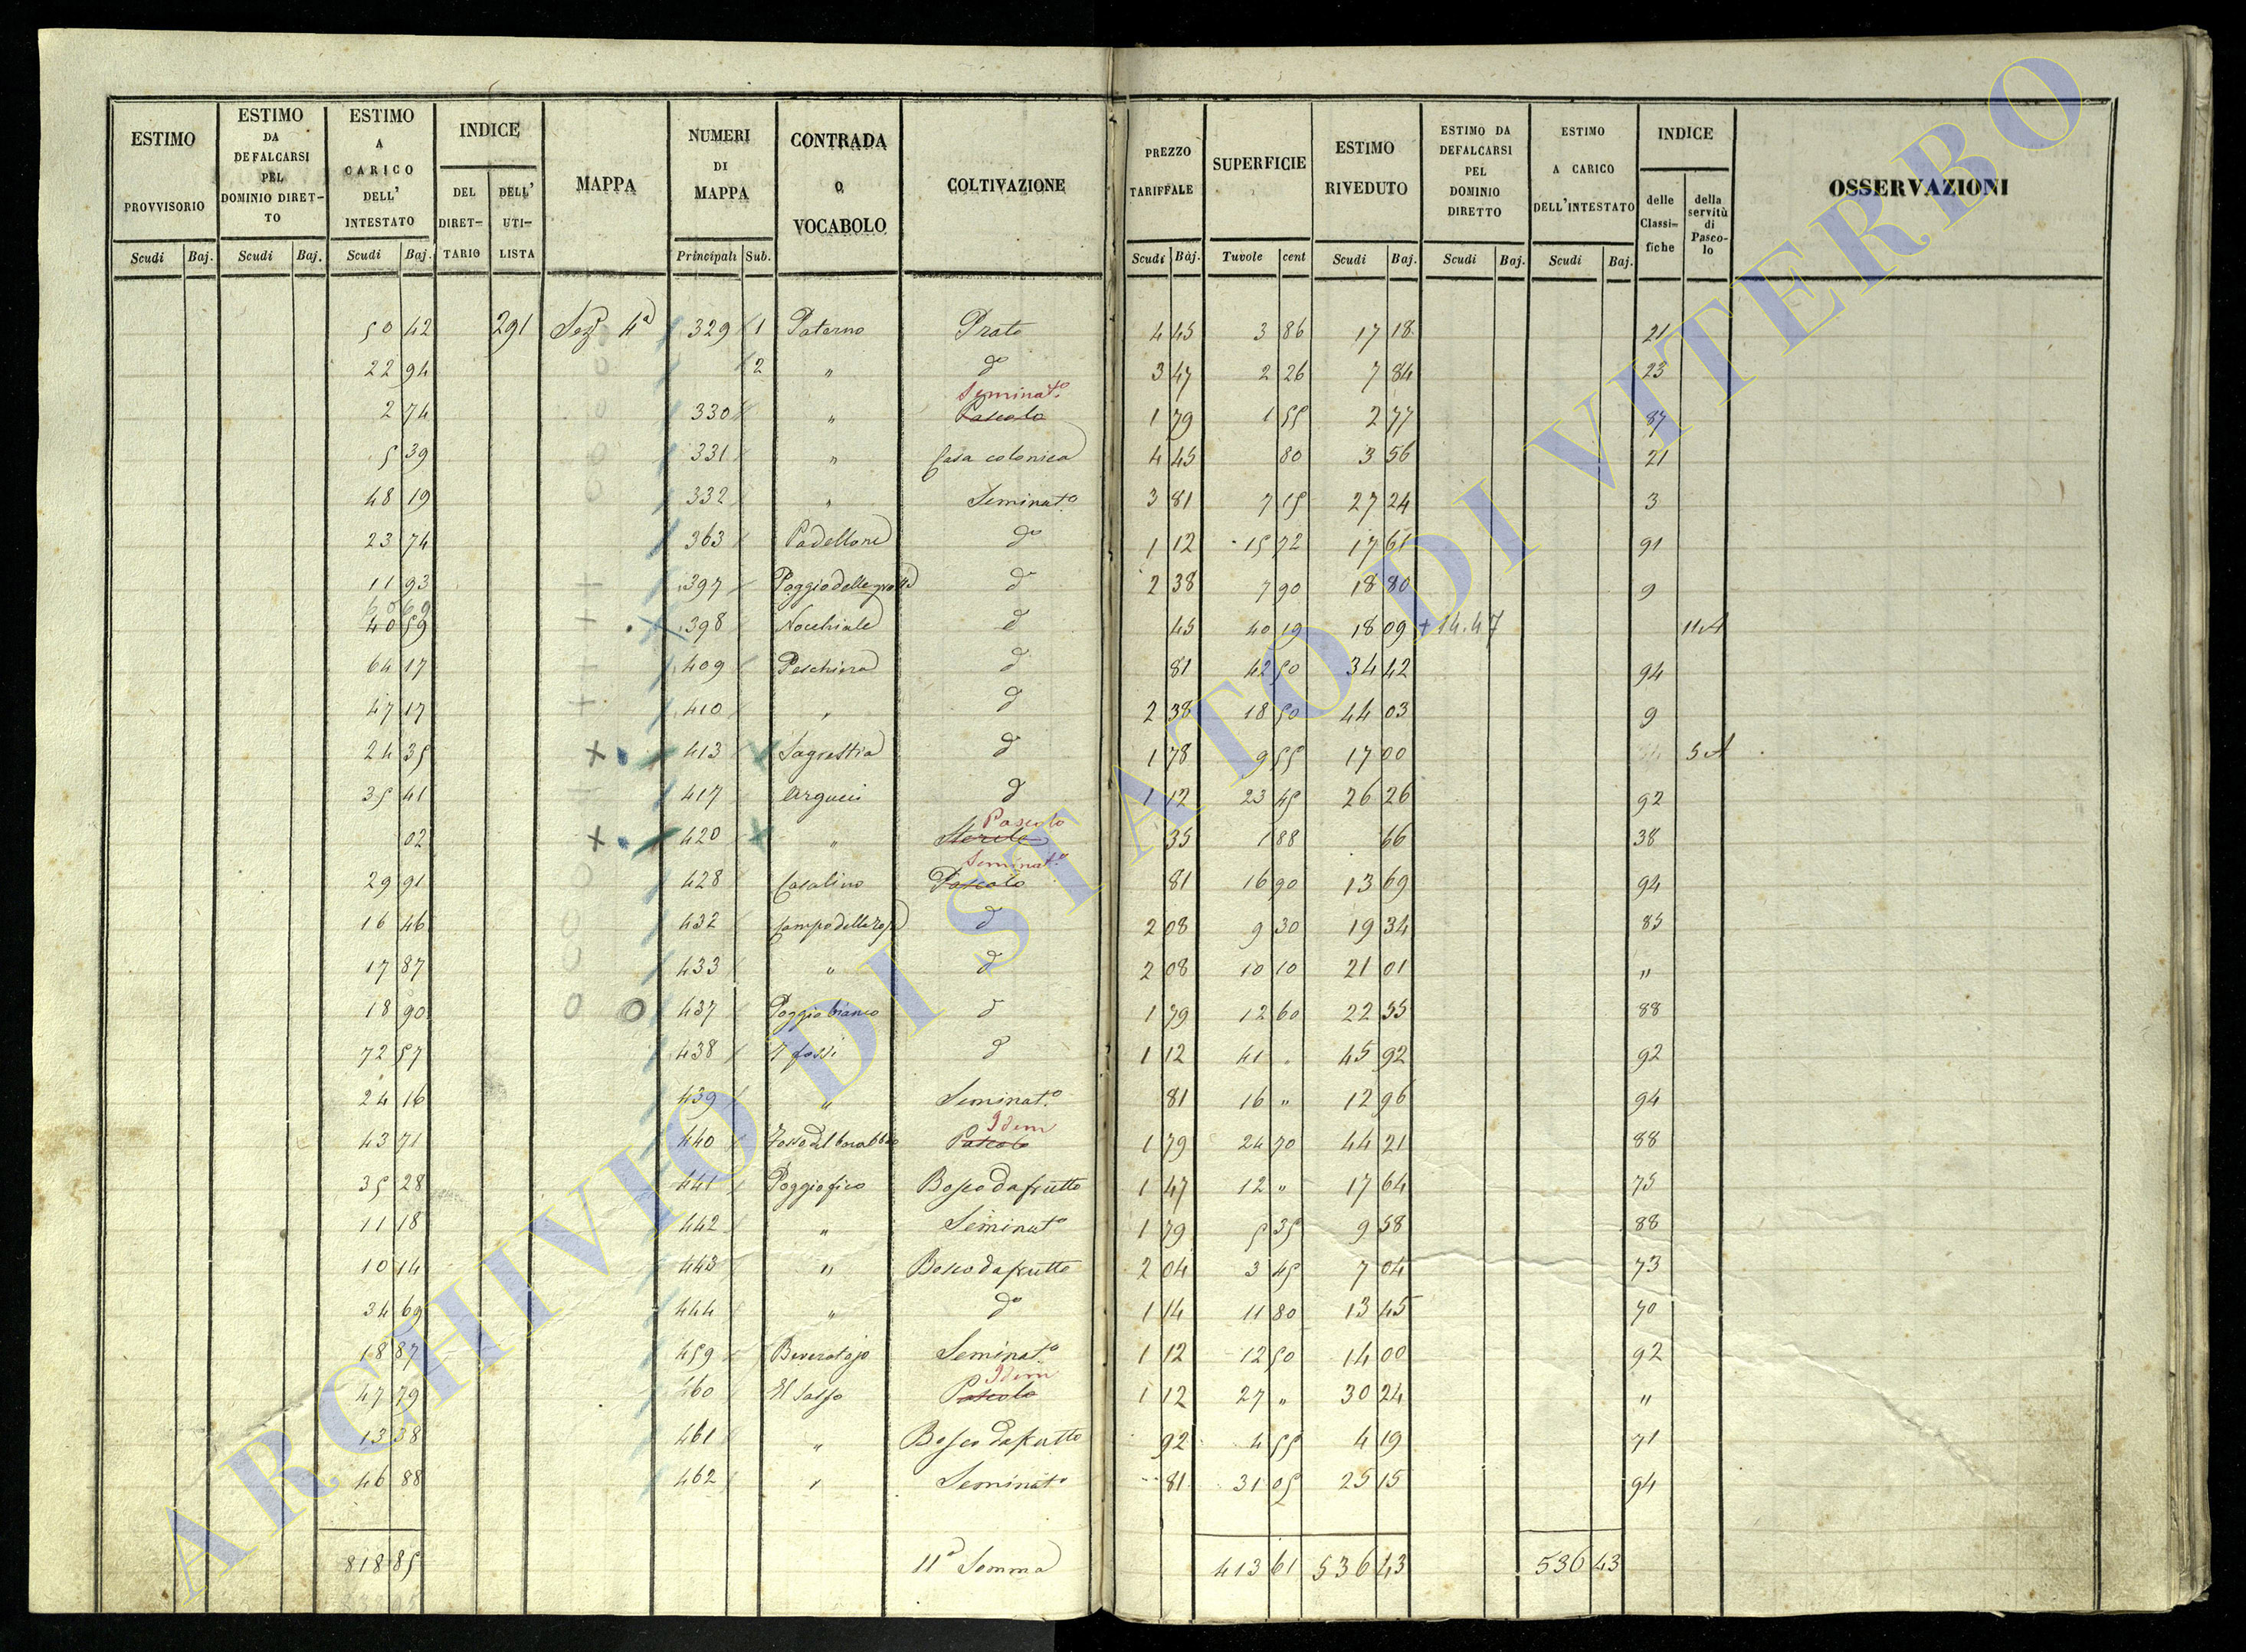 ESTIMO PROVVISORIO | ESTIMO DA DEFALCARSI PEL DOMINIO DIRETTO | ESTIMO A CARICO DELL' INTESTATO | INDICE | MAPPA | NUMERI DI MAPPA | CONTRADA O VOCABOLO | COLTIVAZIONE | PREZZO TARIFFALE | SUPERFICIE | ESTIMO RIVEDUTO | ESTIMO DA DEFALCARSI PEL DOMINIO DIRETTO | ESTIMO A CARICO DELL'INTESTATO | INDICE | OSSERVAZIONI
DEL DIRET-TARIO | DELL' UTI-LISTA | delle Classi-fiche | della servitù di Pasco-lo
Scudi | Baj. | Scudi | Baj. | Scudi | Baj. | Principali | Sub. | Scudi | Baj. | Tavole | cent | Scudi | Baj. | Scudi | Baj. | Scudi | Baj.
50 42 | 291 | Sez. 4a | 329 | 1 | Paterno | Prato | 4 45 | 3 86 | 17 18 | 21
22 94 | 2 | " | do | 3 47 | 2 26 | 7 84 | 23
Seminato
2 74 | 330 | " | Pascolo | 1 79 | 1 55 | 2 77 | 87
5 39 | 331 | " | Casa colonica | 4 45 | 80 | 3 56 | 21
48 19 | 332 | " | Seminato | 3 81 | 7 15 | 27 24 | 3
23 74 | 363 | Padellone | do | 1 12 | 15 72 | 17 61 | 91
11 93 | 397 | Poggio delle grotte | do | 2 38 | 7 90 | 18 80 | 9
60 69
40 59 | 398 | Nocchiale | d | 45 | 40 19 | 18 09 | + 14.47 | 11A
64 17 | 409 | Peschiera | d | 81 | 42 50 | 34 42 | 94
47 17 | 410 | " | d | 2 38 | 18 50 | 44 03 | 9
24 35 | 413 | Sagrestia | d | 1 78 | 9 55 | 17 00 | 5A
35 41 | 417 | Argueci | d | 1 12 | 23 45 | 26 26 | 92
Pascolo
02 | 420 | " | Sterile | 35 | 1 88 | 66 | 38
Seminato
29 91 | 428 | Casalino | Pascolo | 81 | 16 90 | 13 69 | 94
16 46 | 432 | Campo della rosa | d | 2 08 | 9 30 | 19 34 | 85
17 87 | 433 | " | d | 2 08 | 10 10 | 21 01 | "
18 90 | 437 | Poggio bianco | d | 1 79 | 12 60 | 22 55 | 88
72 57 | 438 | I fossi | d | 1 12 | 41 " | 45 92 | 92
24 16 | 439 | " | Seminato | 81 | 16 " | 12 96 | 94
Idem
43 71 | 440 | Pascolo | 1 79 | 24 70 | 44 21 | 88
35 28 | 441 | Poggio fico | Bosco da frutto | 1 47 | 12 " | 17 64 | 75
11 18 | 442 | " | Seminato | 1 79 | 5 35 | 9 58 | 88
10 14 | 443 | " | Bosco da frutto | 2 04 | 3 45 | 7 04 | 73
34 69 | 444 | " | do | 1 14 | 11 80 | 13 45 | 70
18 87 | 459 | Beveratojo | Seminato | 1 12 | 12 50 | 14 00 | 92
Idem
47 79 | 460 | Il Sasso | Pascolo | 1 12 | 27 " | 30 24 | "
13 38 | 461 | " | Bosco da frutto | 92 | 4 55 | 4 19 | 71
46 88 | 462 | " | Seminato | 81 | 31 05 | 25 15 | 94
818 85 | IIa Somma | 413 61 | 536 43 | 536 43
ARCHIVIO DI STATO DI VITERBO